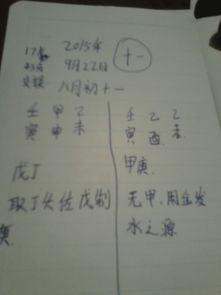 17点
2015年
9月22日
十一
八月初十一
壬 甲 乙
寅 申 未
戊丁
取丁火佐戊制
壬 乙 乙
寅 酉 未
甲庚
无甲、用金发
水之源